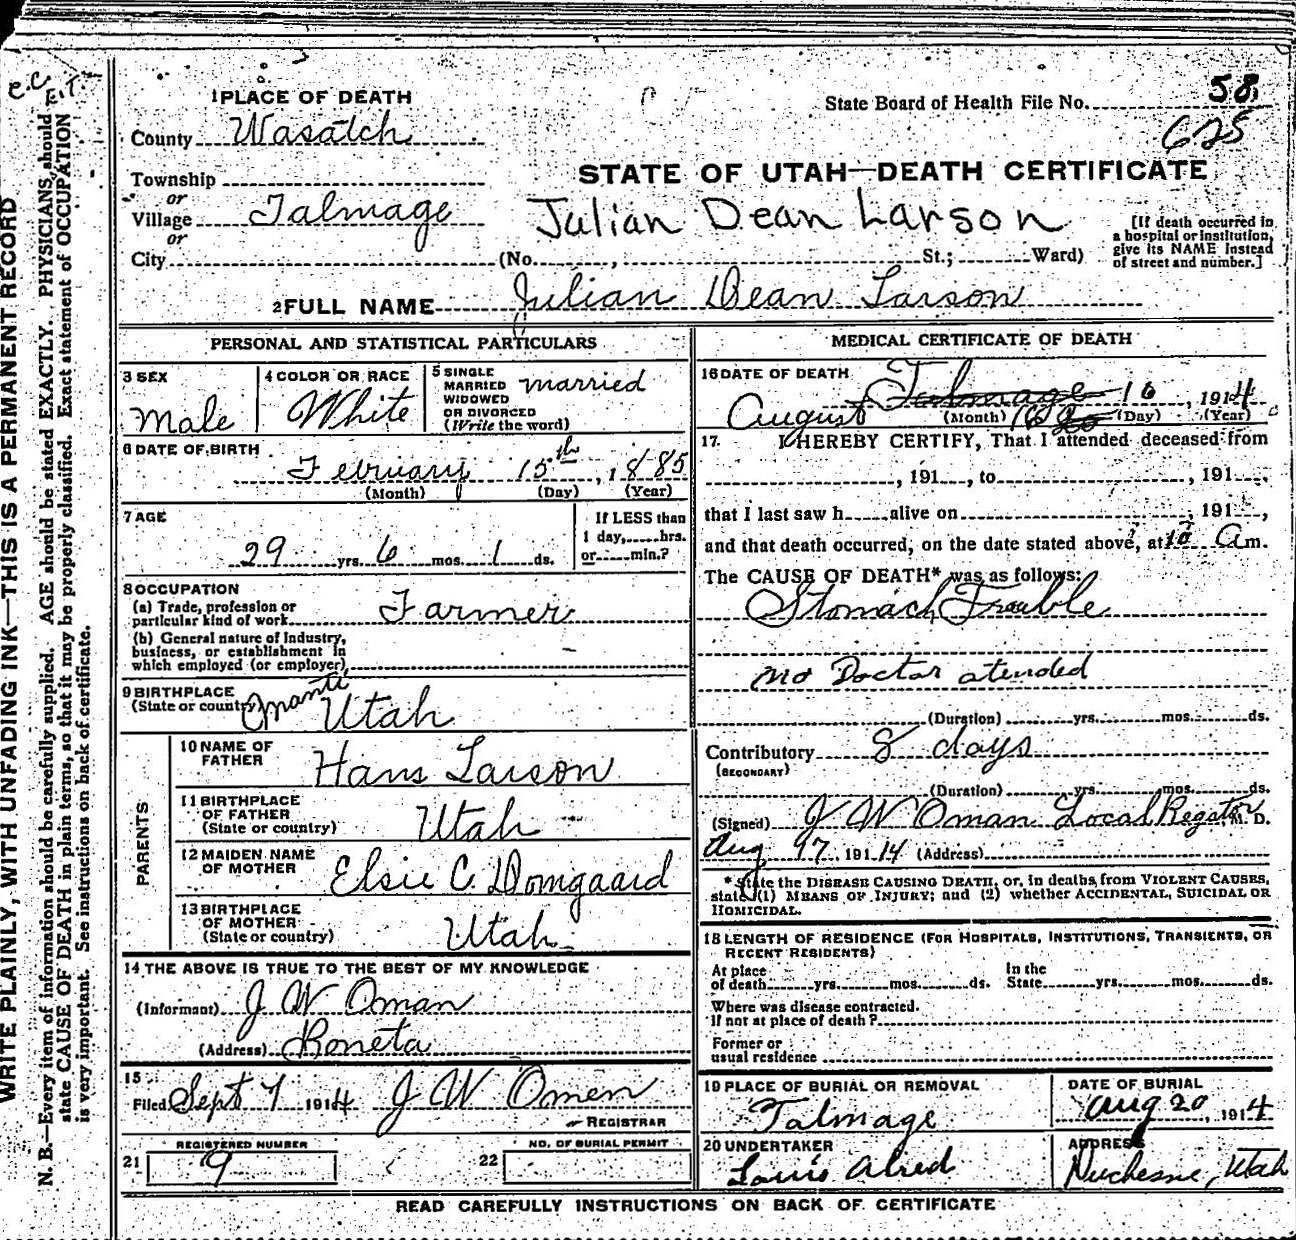 C.C.
E.T.
WRITE PLAINLY, WITH UNFADING INK—THIS IS A PERMANENT RECORD
N. B.—Every item of information should be carefully supplied. AGE should be stated EXACTLY. PHYSICIANS should
state CAUSE OF DEATH in plain terms, so that it may be properly classified. Exact statement of OCCUPATION
is very important. See instructions on back of certificate.
1 PLACE OF DEATH
State Board of Health File No. 58
625
County Wasatch
STATE OF UTAH—DEATH CERTIFICATE
Township
or
Village Talmage
Julian Dean Larson
[If death occurred in
a hospital or institution,
give its NAME instead
of street and number.]
or
City (No. , St.; Ward)
2 FULL NAME Julian Dean Larson
PERSONAL AND STATISTICAL PARTICULARS
3 SEX
Male
4 COLOR OR RACE
White
5 SINGLE
MARRIED
WIDOWED
OR DIVORCED
(Write the word)
married
6 DATE OF BIRTH
February 15th, 1885
(Month) (Day) (Year)
7 AGE
29 yrs. 6 mos. 1 ds.
If LESS than
1 day, hrs.
or min.?
8 OCCUPATION
(a) Trade, profession or
particular kind of work Farmer
(b) General nature of Industry,
business, or establishment in
which employed (or employer)
9 BIRTHPLACE
(State or country) Manti
Utah
PARENTS
10 NAME OF
FATHER Hans Larson
11 BIRTHPLACE
OF FATHER
(State or country) Utah
12 MAIDEN NAME
OF MOTHER Elsie C. Domgaard
13 BIRTHPLACE
OF MOTHER
(State or country) Utah
14 THE ABOVE IS TRUE TO THE BEST OF MY KNOWLEDGE
(Informant) J W Oman
(Address) Boneta
15
Filed Sept 7 1914 J W Omen
REGISTRAR
REGISTERED NUMBER
21 9
NO. OF BURIAL PERMIT
22
MEDICAL CERTIFICATE OF DEATH
16 DATE OF DEATH
Talmage 16, 1914
August (Month) (Day) (Year)
17. I HEREBY CERTIFY, That I attended deceased from
, 191 , to , 191 ,
that I last saw h alive on , 191 ,
and that death occurred, on the date stated above, at 10 Am.
The CAUSE OF DEATH* was as follows:
Stomach Trouble
No Doctor atended
(Duration) yrs. mos. ds.
Contributory 8 days
(SECONDARY)
(Duration) yrs. mos. ds.
(Signed) J W Oman Local Registor M. D.
Aug 1914 (Address)
* State the DISEASE CAUSING DEATH, or, in deaths from VIOLENT CAUSES,
state (1) MEANS OF INJURY; and (2) whether ACCIDENTAL, SUICIDAL OR
HOMICIDAL.
18 LENGTH OF RESIDENCE (FOR HOSPITALS, INSTITUTIONS, TRANSIENTS, OR
RECENT RESIDENTS)
At place
of death yrs. mos. ds.
In the
State yrs. mos. ds.
Where was disease contracted.
If not at place of death?
Former or
usual residence
19 PLACE OF BURIAL OR REMOVAL
Talmage
DATE OF BURIAL
Aug 20, 1914
20 UNDERTAKER
Louis Alred
ADDRESS
Duchesne, Utah
READ CAREFULLY INSTRUCTIONS ON BACK OF CERTIFICATE